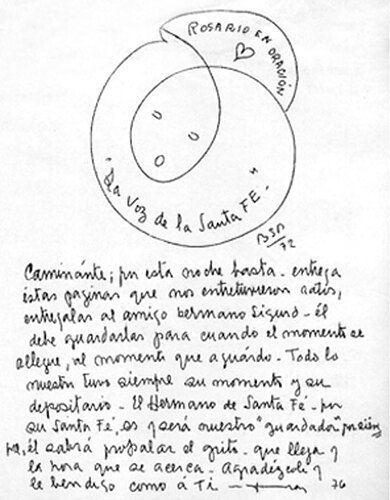 ROSARIO EN ORACIÓN
"La Voz de la Santa FE-"
BSP
72
Caminánte; pn esta noche basta- entrega
éstas paginas que nos entretuvieron ratos,
entregalas al amigo hermano Sigurd- él
debe guardarlas para cuando el momento se
allegue, al momento que aguárdo- Todo lo
nuestro tuvo siempre su momento y su
depositario- El Hermano de Santa Fé- pn
su Santa Fé, es y será nuestro "guardador"
él sabrá propalar el grito- que llega y
la hora que se acerca- Agradézcole y
le bendigo como á Ti-
76